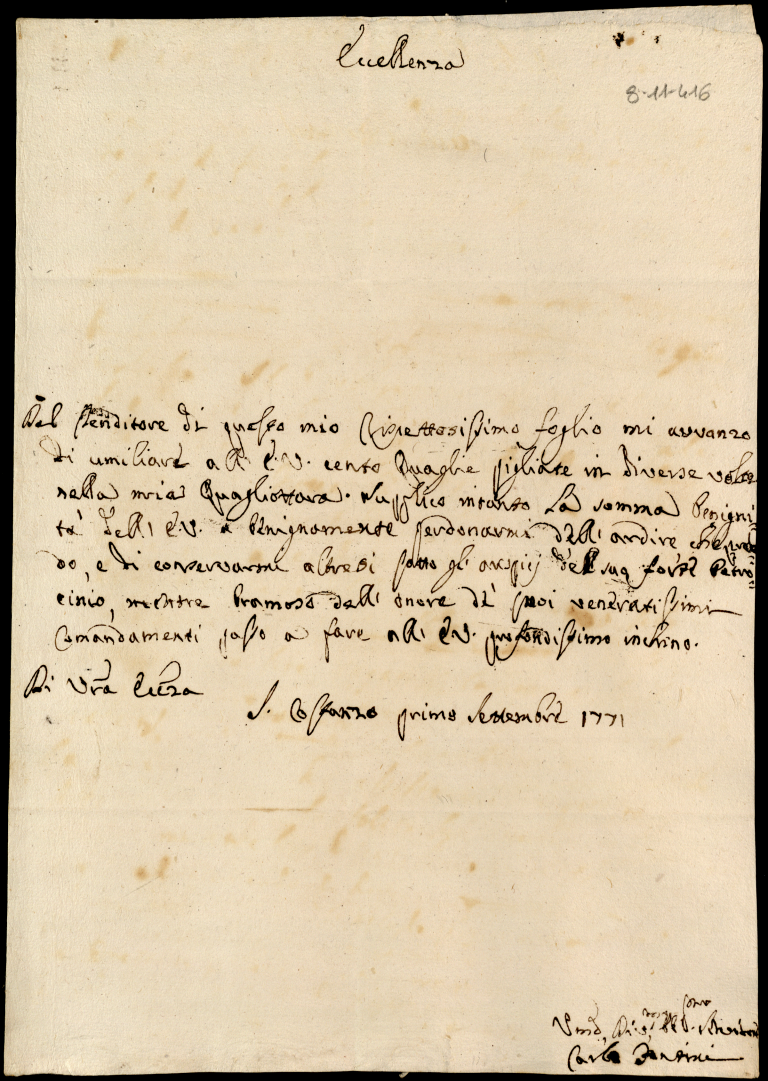 Eccellenza
8-11-416
Dal Renditore di questo mio Rispettosissimo foglio mi avvanzo
di umiliare all' E.V. cento Quaglie pigliate in diverse volte
nella mia Quagliottara. Supplico intanto La somma benigni=
tà dell' E.V. a benignamente perdonarmi dell' ardire che pren=
do, e di conservarmi altresi sotto gl' auspicj del suo forte Patro=
cinio, mentre bramoso dell' onore de' suoi veneratissimi
comandamenti passo a fare all' E.V. profondissimo inchino.
Di Vra Eccza
S. Costanzo primo Settembre 1771
Umo, Servitore
Carlo